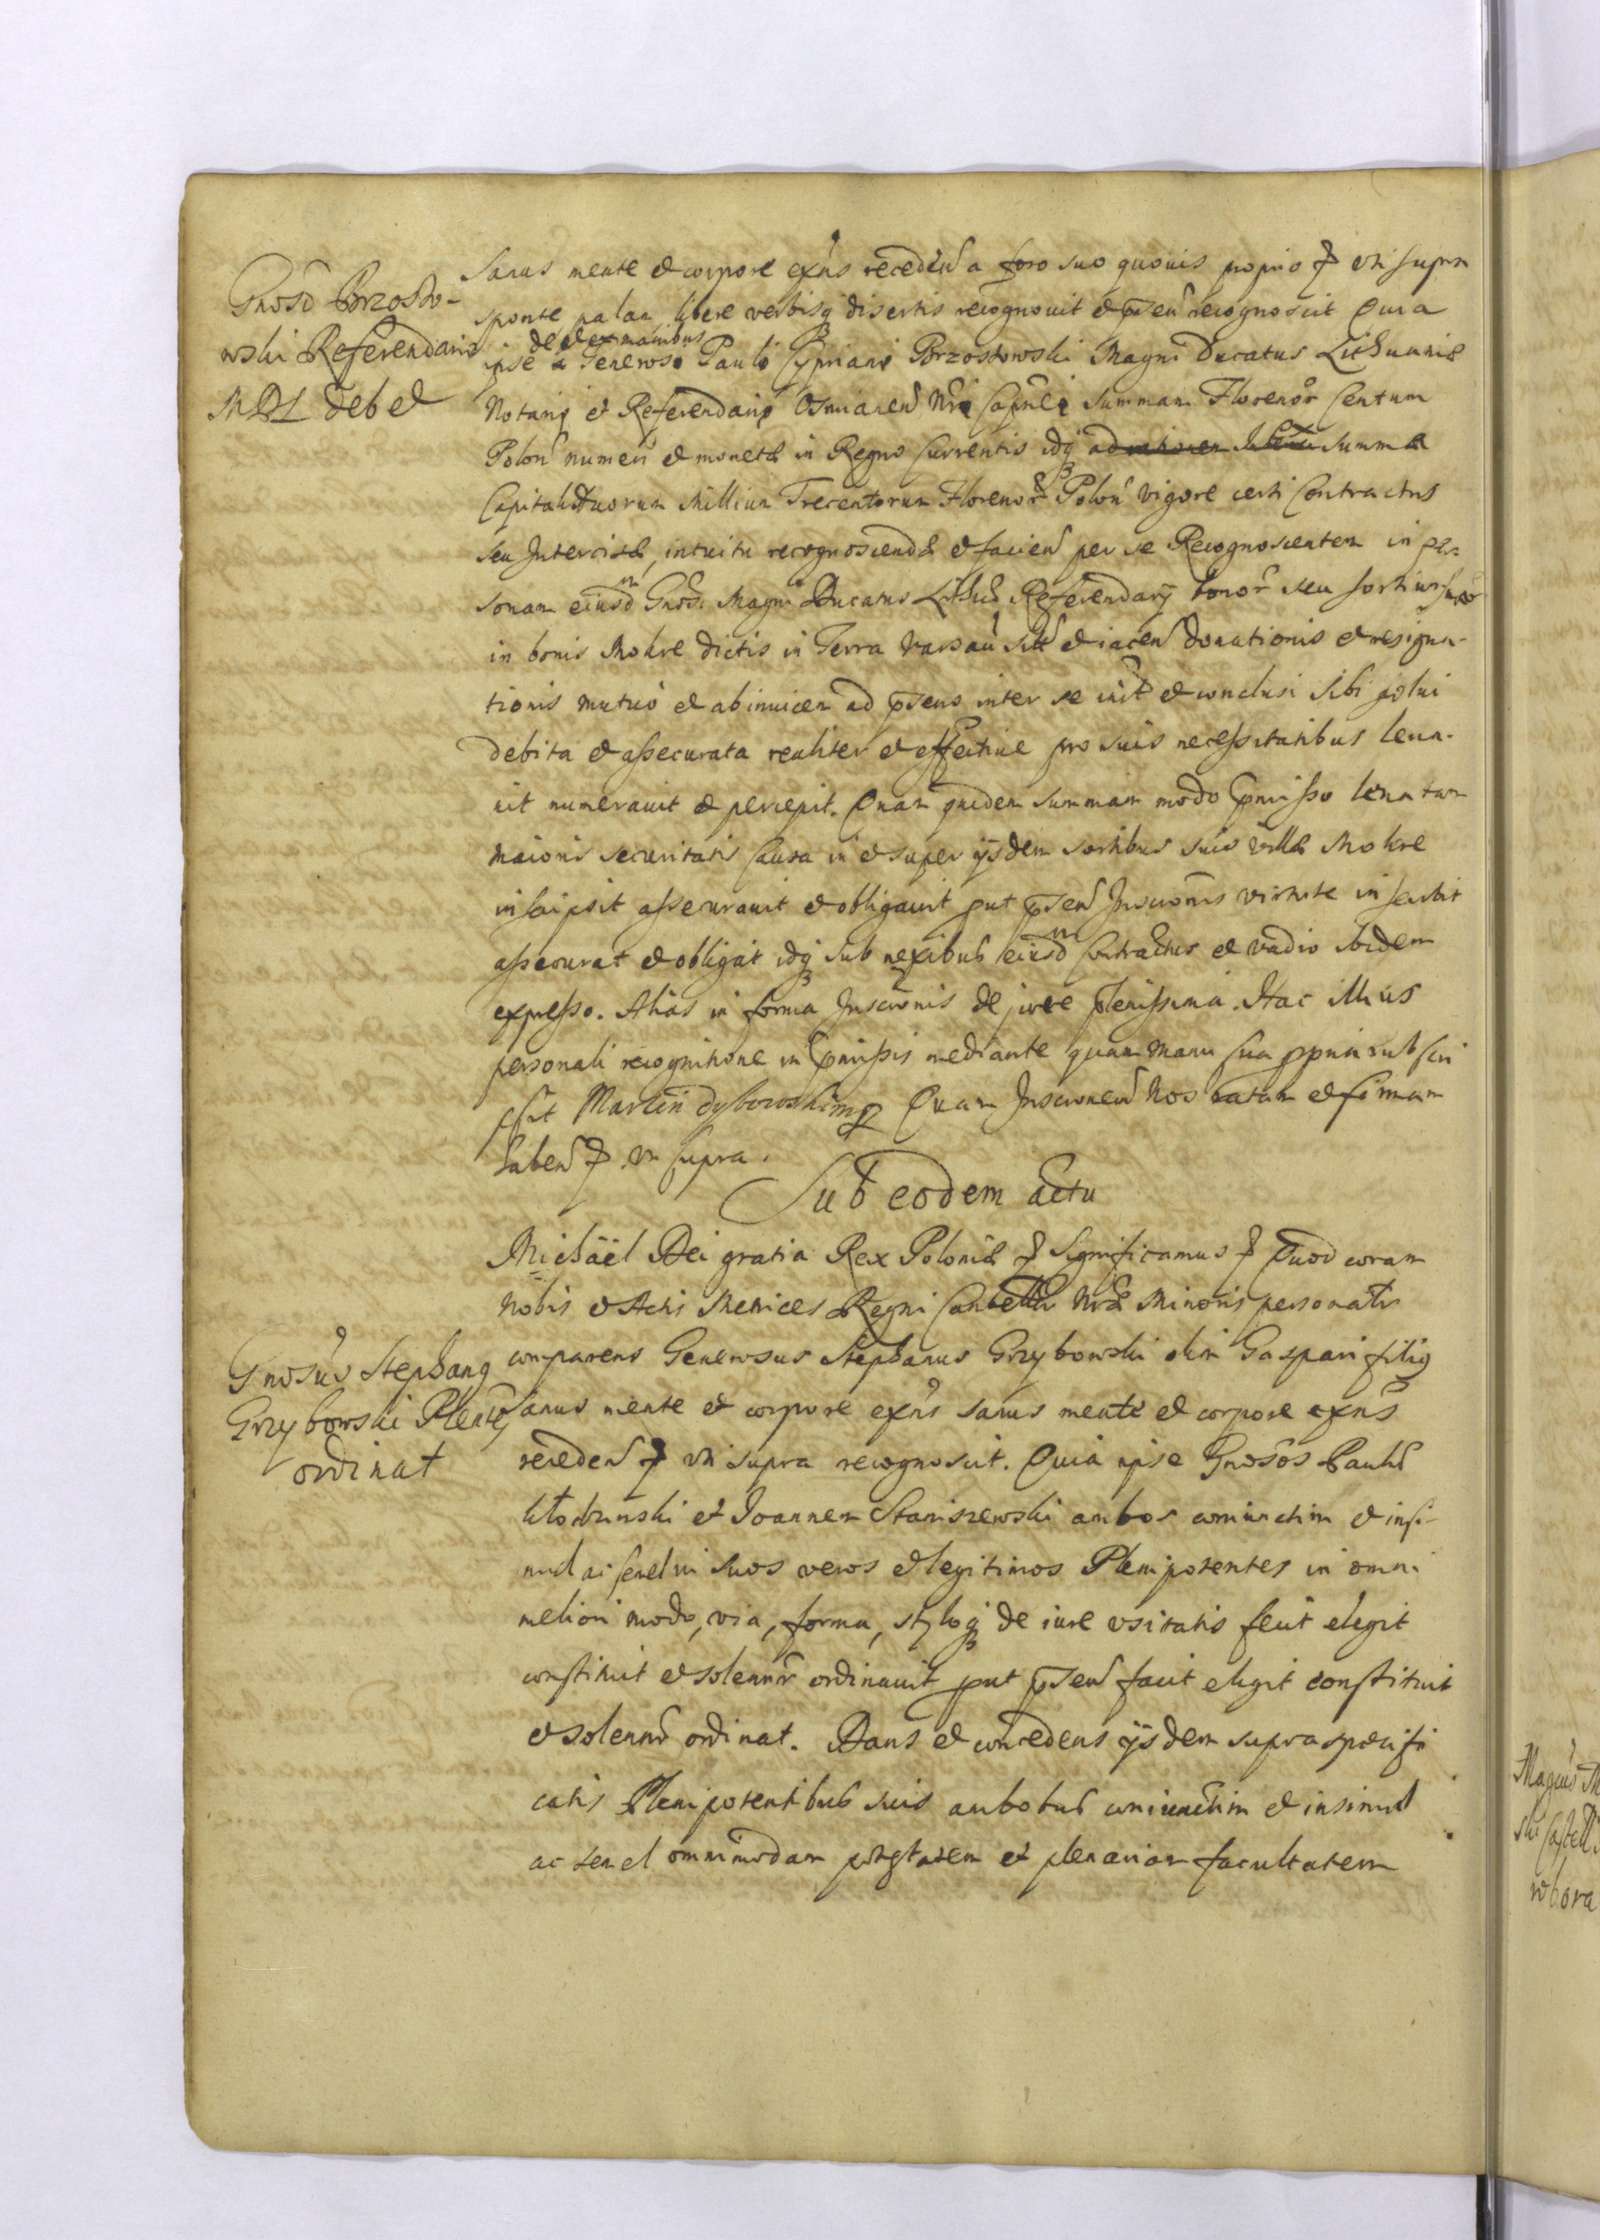 Gnosō Brzosto-
wski Referendario
MDL debet
sanus mente et corpore exñs recedeñ a foro suo quouis proprio ꝑ uti supra
sponte palam libere verbisq disertis recognouit et pñseñ recognoscit Quia
de et ex manibus
ipse a Generoso Pauli Cypriani Brzostowski Magni Ducatus Lithuaniæ
Notarij et Referendarij Osmianeñ Nri Capnei Summam Florenor Centum
Polon numeri et monetæ in Regno Currentis idq ad rationem Summæ
Capitalis duorum Millium Trecentorum Florenor Polon vigore certi Contractus
seu Intercisæ, intuitu recognoscendæ et facieñ per se Recognoscentem in per-
sonam eiusdm Gnosi Magni Ducatus Lithuæ Referendarij bonor seu sortium suar
in bonis Mokre dictis in Terra Varsauī sitī et iaceñ donationis et resigna-
tionis mutuo et abinuicem ad pñsens inter se initi et conclusi sibi solui
debita et assecurata realiter et effectiue pro suis necessitatibus leua-
uit numerauit et percepit. Quam quidem summam modo pmisso leuatam
maioris securitatis Causa in et super ijsdem sortibus suis villæ Mokre
inscripsit assecurauit et obligauit put pñseñ Inscrionis virtute inscribit
assecurat et obligat idq sub nexibus eiusdm Contractus et vadio ibidem
expresso. Alias in forma Inscrionis de jure plenissima. Hac illius
personali recognitione in pmissis mediante quam manu sua ppria subscri
psit Martin dybowski mp Quam Inscrionem Nos ratam et firmam
habeñ ꝑ ut supra.
Sub eodem actu
Michaël Dei gratia Rex Poloniæ ꝑ Significamus ꝑ Quod coram
Nobis et Actis Metrices Regni Cancellæ Nræ Minoris personatr
Gnosus Stephang
Grzybowski Plentes
ordinat
comparens Generosus Stephanus Grzybowski olim Gaspari filig
sanus mente et corpore exñs sanus mente et corpore exñs
recedeñ ꝑ uti supra recognoscit. Quia ipse Gnosos Paulū
Kłodzinski et Joannem Staniszewski ambos coniunctim et insi-
mul ac semel in suos veros et legitimos Plenipotentes in omni
meliori modo, via, forma, styloq de iure usitatis fecit elegit
constituit et solennr ordinauit put pñseñ facit elegit constituit
et solennr ordinat. Dans et concedens ijsdem supraspecifi
catis Plenipotentibus suis ambobus coniunctim et insimul
ac semel omnimodam ptgtatem et plenariam facultatem